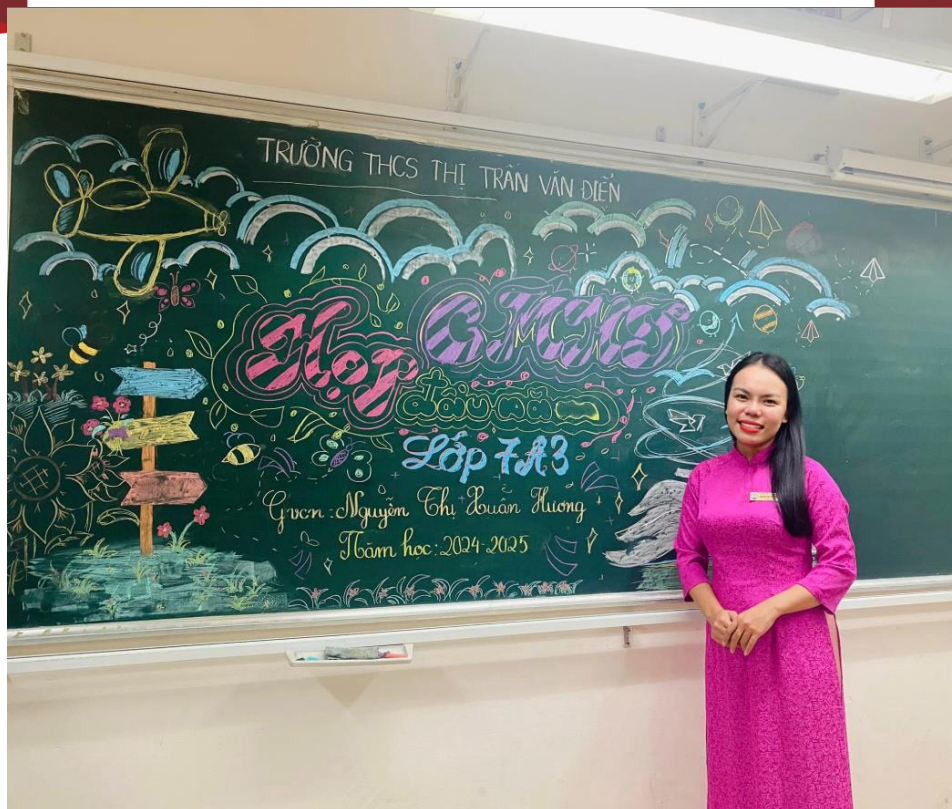 TRƯỜNG THCS THỊ TRẤN VĂN ĐIỂN
Họp CMHS
đầu năm
Lớp 7A3
Gvcn: Nguyễn Thị Xuân Hương
Năm học: 2024-2025